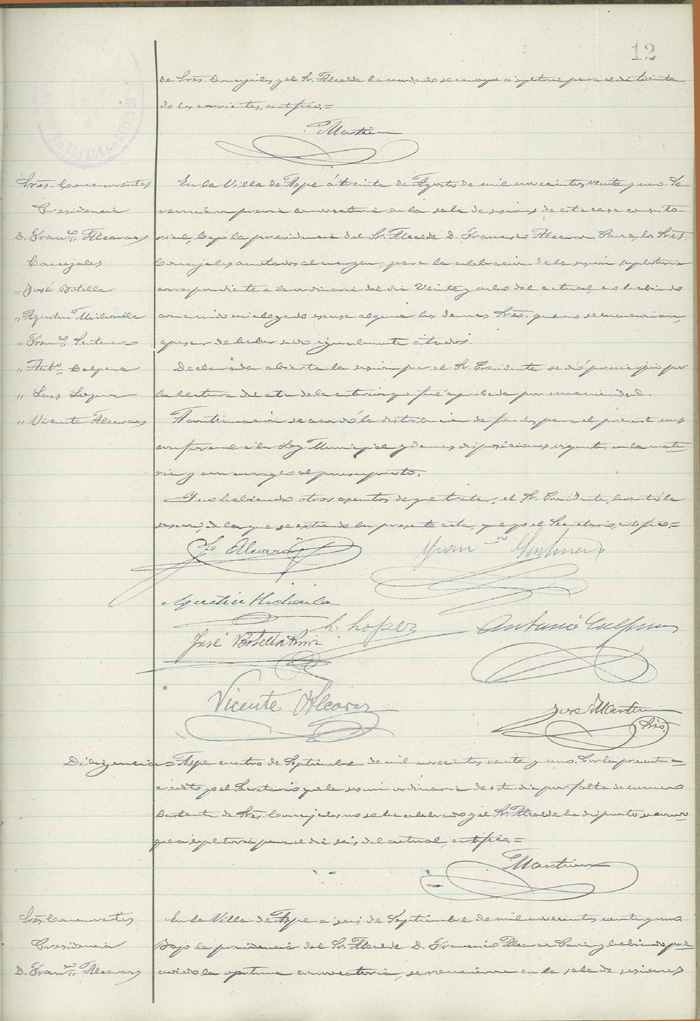 12
de Sres. Concejales y el Sr. Alcalde ha acordado se convoque a supletoria para el día treinta
de los corrientes, certifico.=
Martinez
Sres. Concurrentes
Presidencia
D. Franco. Alcaraz
Concejales
" José Botella
" Agustín Mira
" Franco.
" Anto. Calpena
" Luis López
" Vicente Alcaraz
En la Villa de Aspe á treinta de Agosto de mil novecientos veinte y uno. Se
reunieron previa convocatoria en la sala de sesiones de esta casa consisto-
rial, bajo la presidencia del Sr. Alcalde D. Francisco Alcaraz los Sres.
Concejales anotados al margen, para la celebración de la sesión supletoria
correspondiente a la ordinaria del día Veinte y ocho del actual, no habiendo
concurrido ni alegado excusa alguna los demas Sres. que no se mencionan,
apesar de haber sido igualmente citados.
Declarada abierta la sesión por el Sr. Presidente se dió principio por
la lectura del acta de la anterior que fué aprobada por unanimidad.
A continuación se acordó la distribución de fondos para el presente mes
conforme a la Ley Municipal y demas disposiciones vigentes en la mate-
ria y con arreglo al presupuesto.
Y no habiendo otros asuntos de que tratar, el Sr. Presidente, levantó la
sesión de la que se extiende la presente acta, que yo el Secretario, certifico=
Fco. Alcaraz
Agustin
L. Lopez
Antonio Calpena
José Botella
Vicente Alcaraz
José Martinez
Srio
Diligencia= Aspe cuatro de Septiembre de mil novecientos veinte y uno. Por la presente a-
credito yo el Secretario que la sesión ordinaria de este día por falta de numero
bastante de Sres. Concejales no se ha celebrado y el Sr. Alcalde ha dispuesto se convo-
que a supletoria para el día seis del actual, certifico=
Martinez
Sres. Concurrentes
Presidencia
D. Franco. Alcaraz
En la Villa de Aspe a seis de Septiembre de mil novecientos veinte y uno
Bajo la presidencia del Sr. Alcalde D. Francisco Alcaraz y habiendo pre-
cedido la oportuna convocatoria, se reunieron en la sala de sesiones